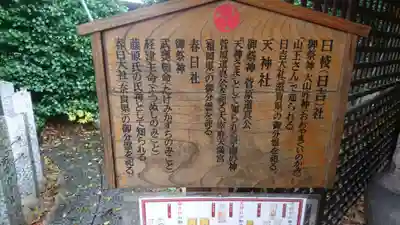 日枝日吉社
御祭神 大山咋神(おおやまくいのかみ)
「山王さん」で知られる
日吉大社(滋賀県)の御分霊を祀る。
天神社
御祭神 菅原道真公
「天神さま」として知られる学問の神
菅原道真公を祀る太宰府天満宮
(福岡県)の御分霊を祀る。
春日社
御祭神
武甕槌命(たけみかづちのみこと)
経津主命(ふつぬしのみこと)
藤原氏の氏神として知られる
春日大社(奈良県)の御分霊を祀る。